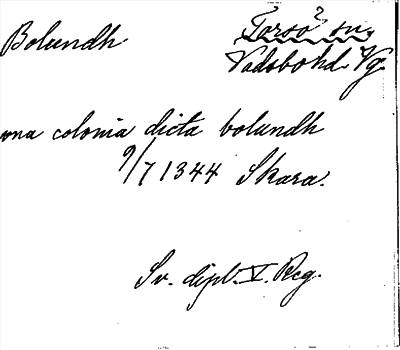 Bolundh
Torsö? sn.
Vadsbo hd Vg.
una colonia dicta bolundh
9/7 1344 Skara.
Sv. dipl. V. Reg.